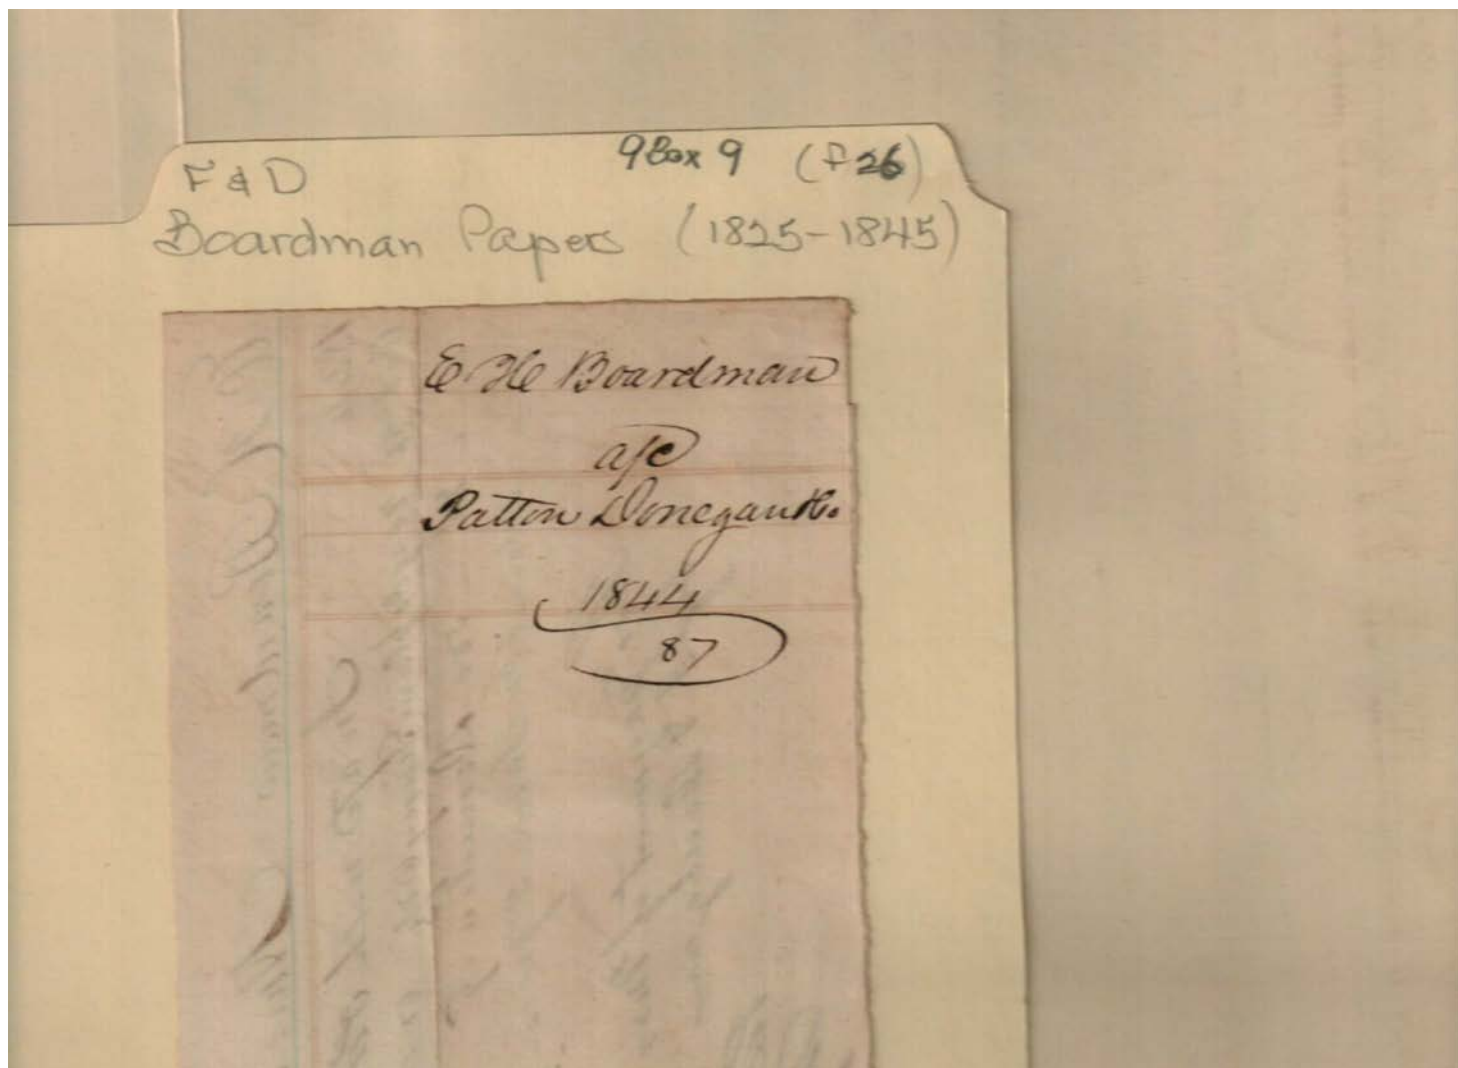 F & D
9 Box 9 (f 26)
Boardman Papers (1825-1845)
E H Boardman
a/c
Patton Donegan & Co.
1844
87